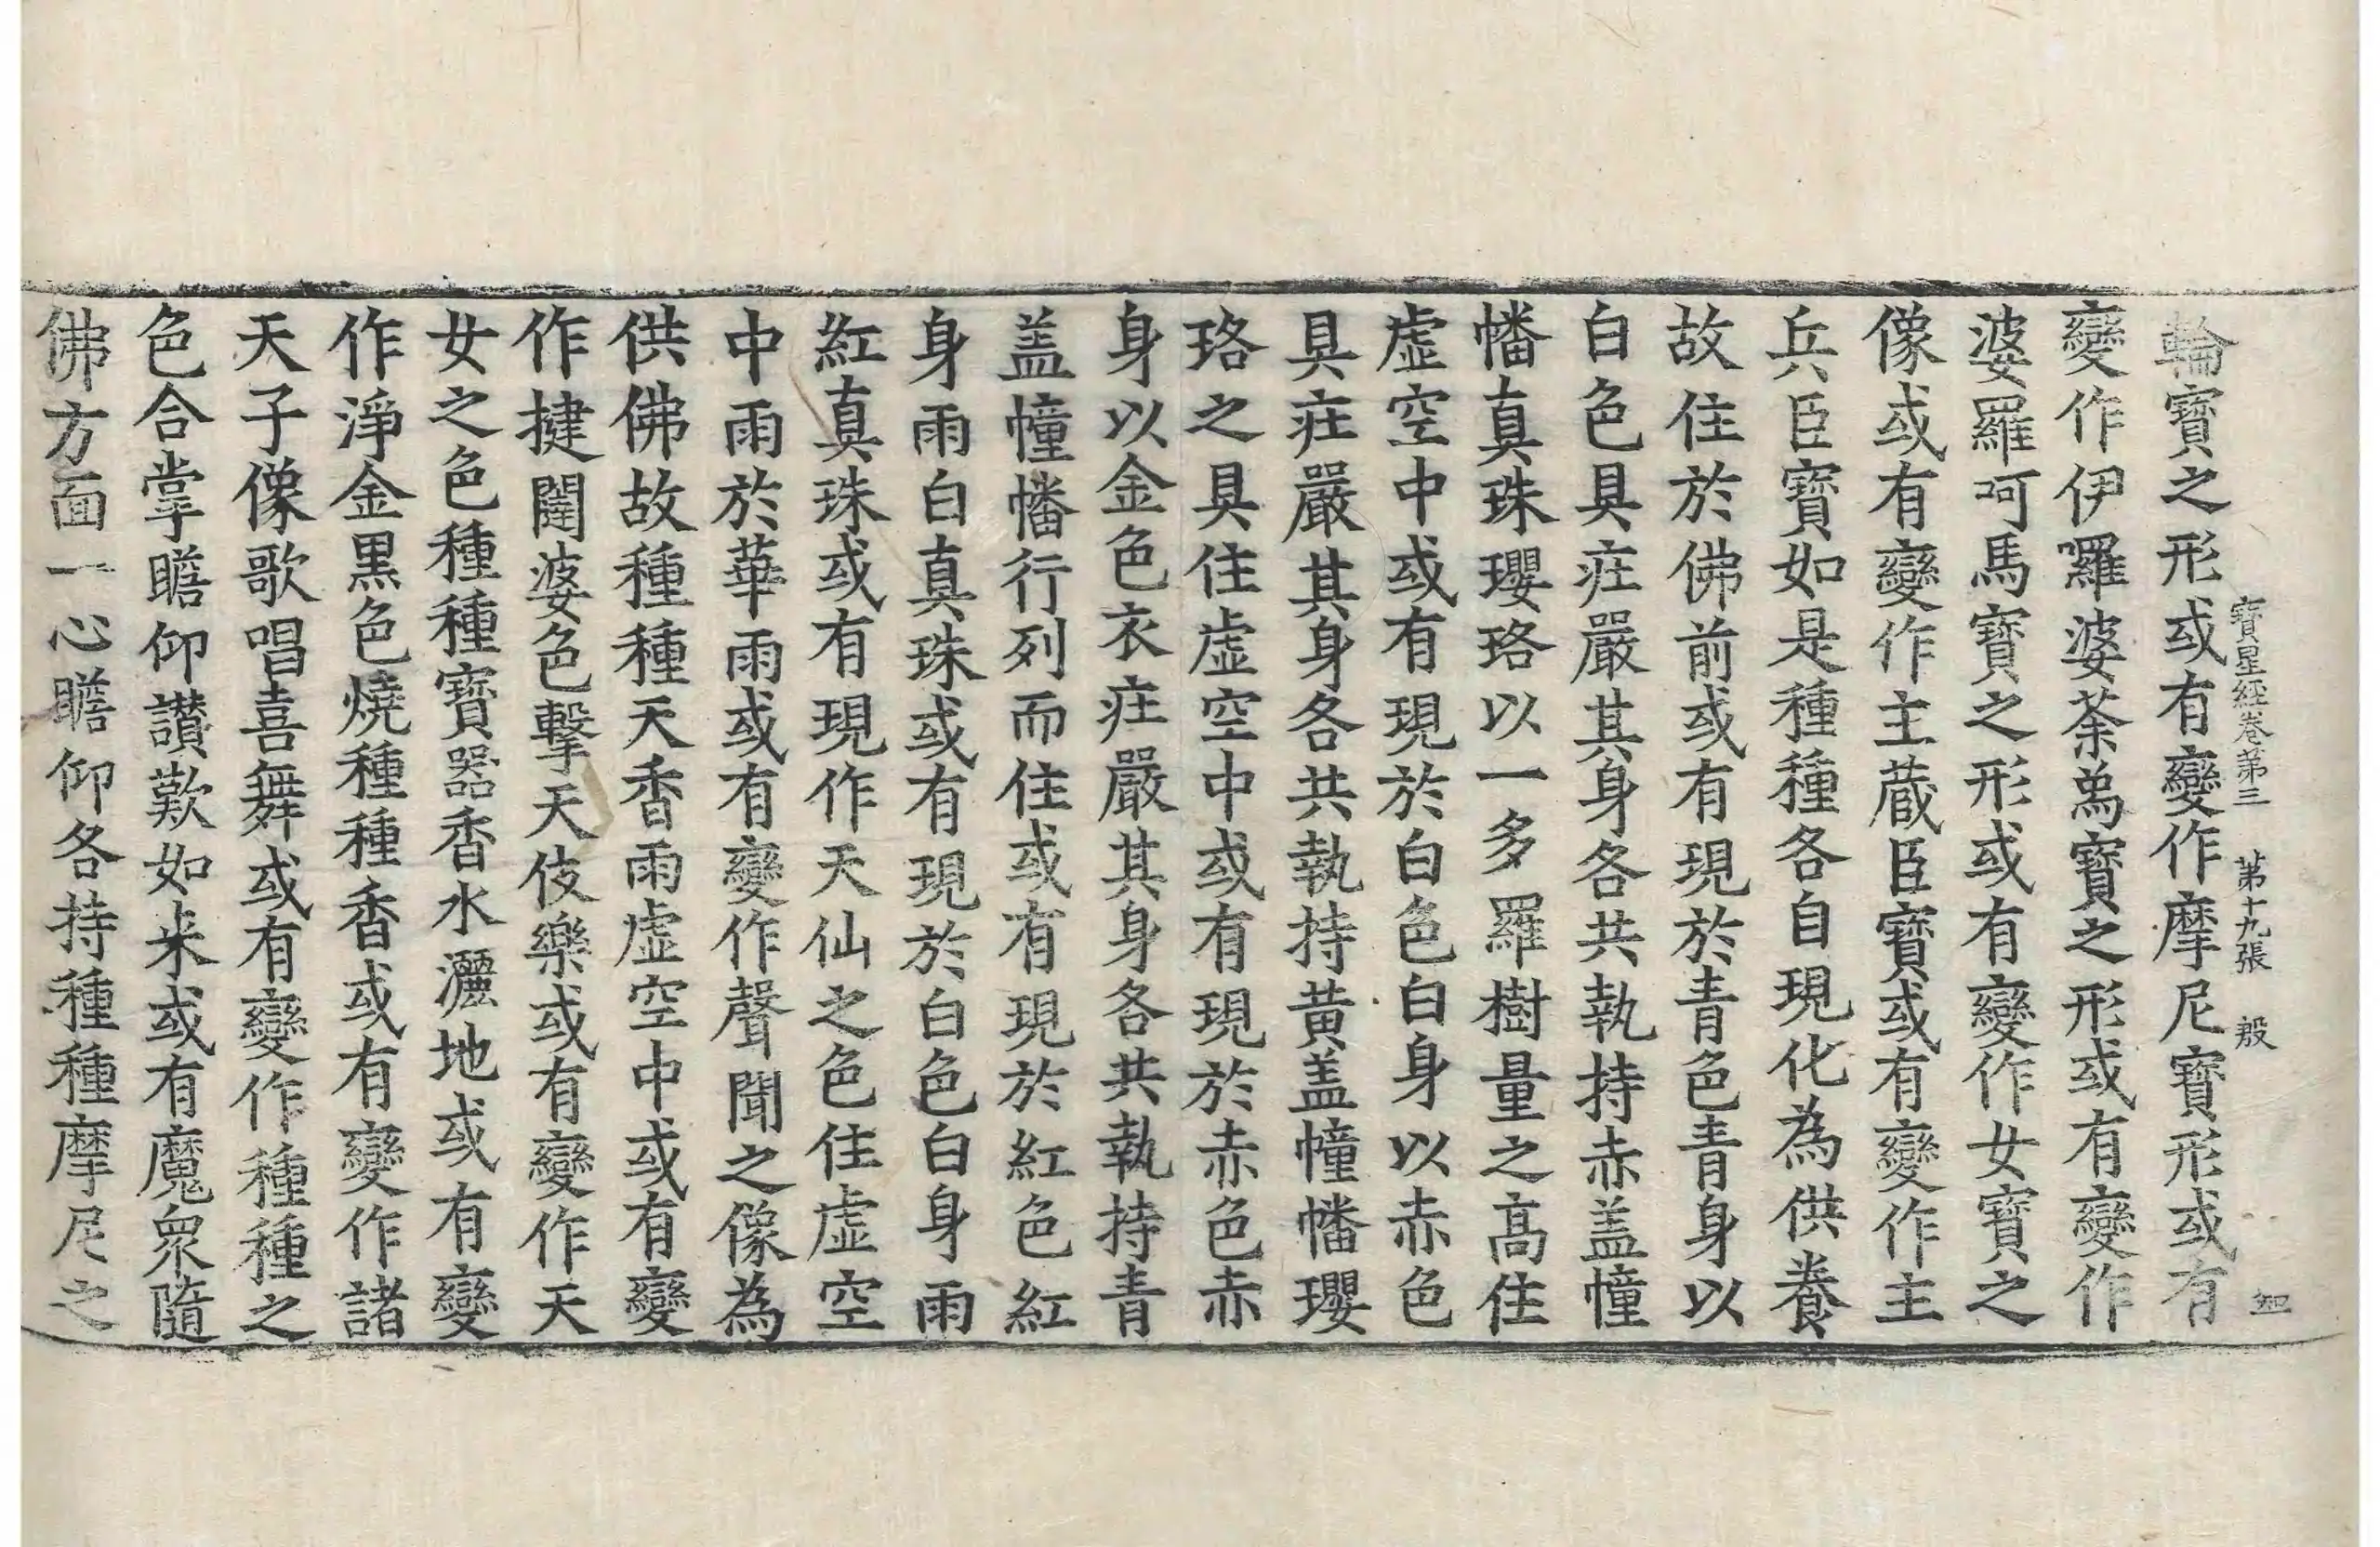 寶星經卷第三 第十九張 殷
輪寶之形或有變作摩尼寶形或有
變作伊囉婆荼爲寶之形或有變作
婆羅呵馬寶之形或有變作女寶之
像或有變作主蔵臣寶或有變作主
兵臣寶如是種種各自現化為供養
故住於佛前或有現於青色青身以
白色具庄嚴其身各共執持赤盖幢
幡真珠瓔珞以一多羅樹量之高住
虚空中或有現於白色白身以赤色
具庄嚴其身各共執持黄盖幢幡瓔
珞之具住虚空中或有現於赤色赤
身以金色衣庄嚴其身各共執持青
盖幢幡行列而住或有現於紅色紅
身雨白真珠或有現於白色白身雨
紅真珠或有現作天仙之色住虚空
中雨於華雨或有變作聲聞之像為
供佛故種種天香雨虚空中或有變
作揵闥婆色擊天伎樂或有變作天
女之色種種寶器香水灑地或有變
作淨金黒色燒種種香或有變作諸
天子像歌唱喜舞或有變作種種之
色合掌瞻仰讃歎如来或有魔衆隨
佛方面一心瞻仰各持種種摩尼之